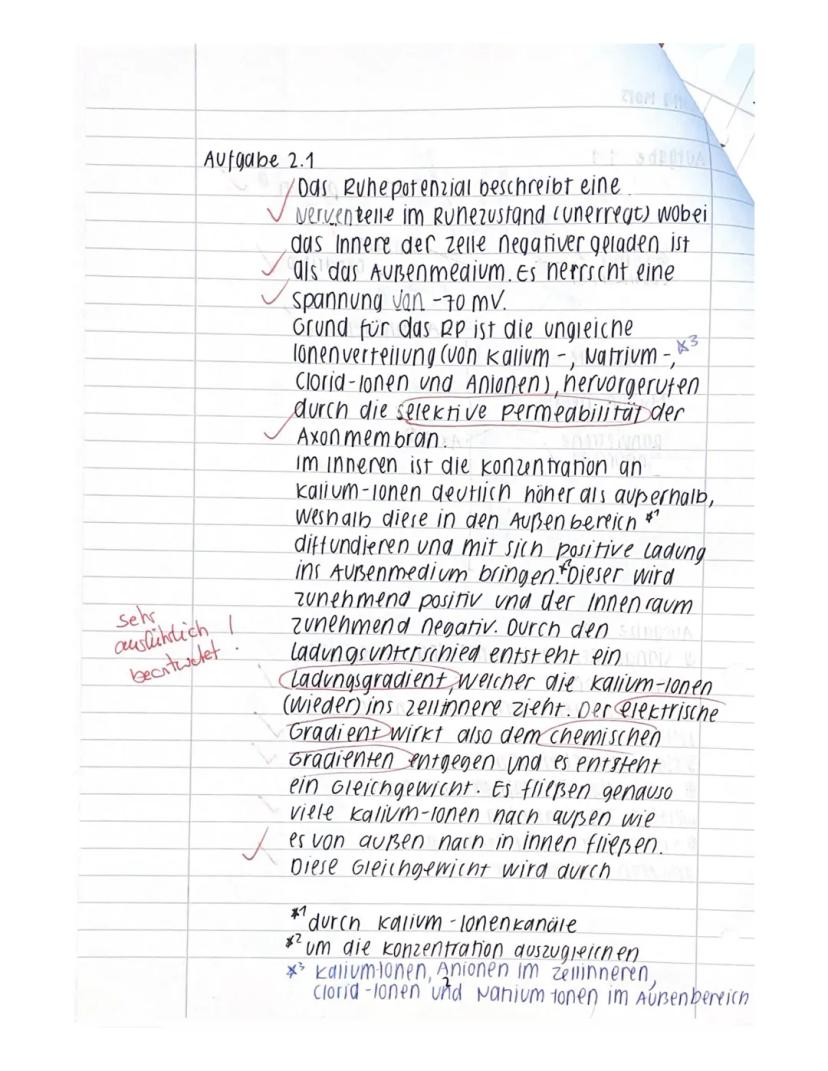 Aufgabe 2.1
Das Ruhepotenzial beschreibt eine
Nervenzelle im Ruhezustand (unerregt) wobei
das Innere der Zelle negativer geladen ist
als das Außenmedium. Es herrscht eine
Spannung von -70 mV.
Grund für das RP ist die ungleiche
Ionenverteilung (von Kalium-, Natrium-, *3
Clorid-Ionen und Anionen), hervorgerufen
durch die selektive Permeabilität der
Axonmembran.
Im Inneren ist die Konzentration an
Kalium-Ionen deutlich höher als außerhalb,
weshalb diese in den Außenbereich *1
diffundieren und mit sich positive Ladung
ins Außenmedium bringen.*2 Dieser wird
zunehmend positiv und der Innenraum
zunehmend negativ. Durch den
Ladungsunterschied entsteht ein
Ladungsgradient, welcher die Kalium-Ionen
(wieder) ins Zellinnere zieht. Der elektrische
Gradient wirkt also dem chemischen
Gradienten entgegen und es entsteht
ein Gleichgewicht. Es fließen genauso
viele Kalium-Ionen nach außen wie
es von außen nach in innen fließen.
Diese Gleichgewicht wird durch
sehr
ausführlich !
beantwortet
*1 durch Kalium-Ionenkanäle
*2 um die Konzentration auszugleichen
*3 Kalium-Ionen, Anionen im Zellinneren,
Clorid-Ionen und Natrium Ionen im Außenbereich
2